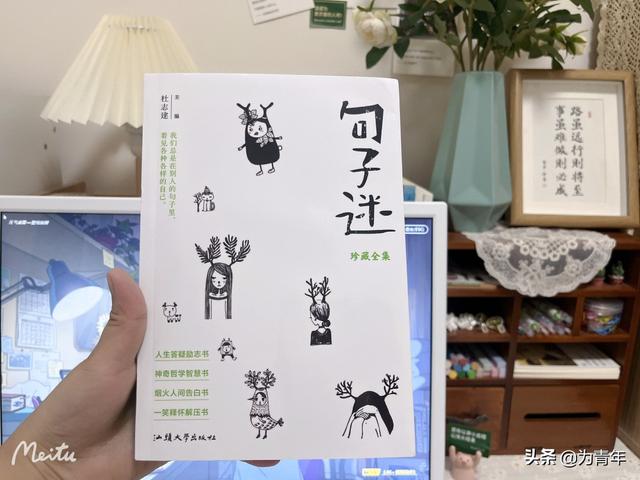 句子迷
珍藏全集
主编
杜志建
我们总是在别人的句子里，
看见各种各样的自己。
人生答疑励志书
神奇哲学智慧书
烟火人间告白书
一笑释怀解压书
汕頭大學出版社
路虽远行則将至
事虽难做則必成
Meitu
头条 @为青年